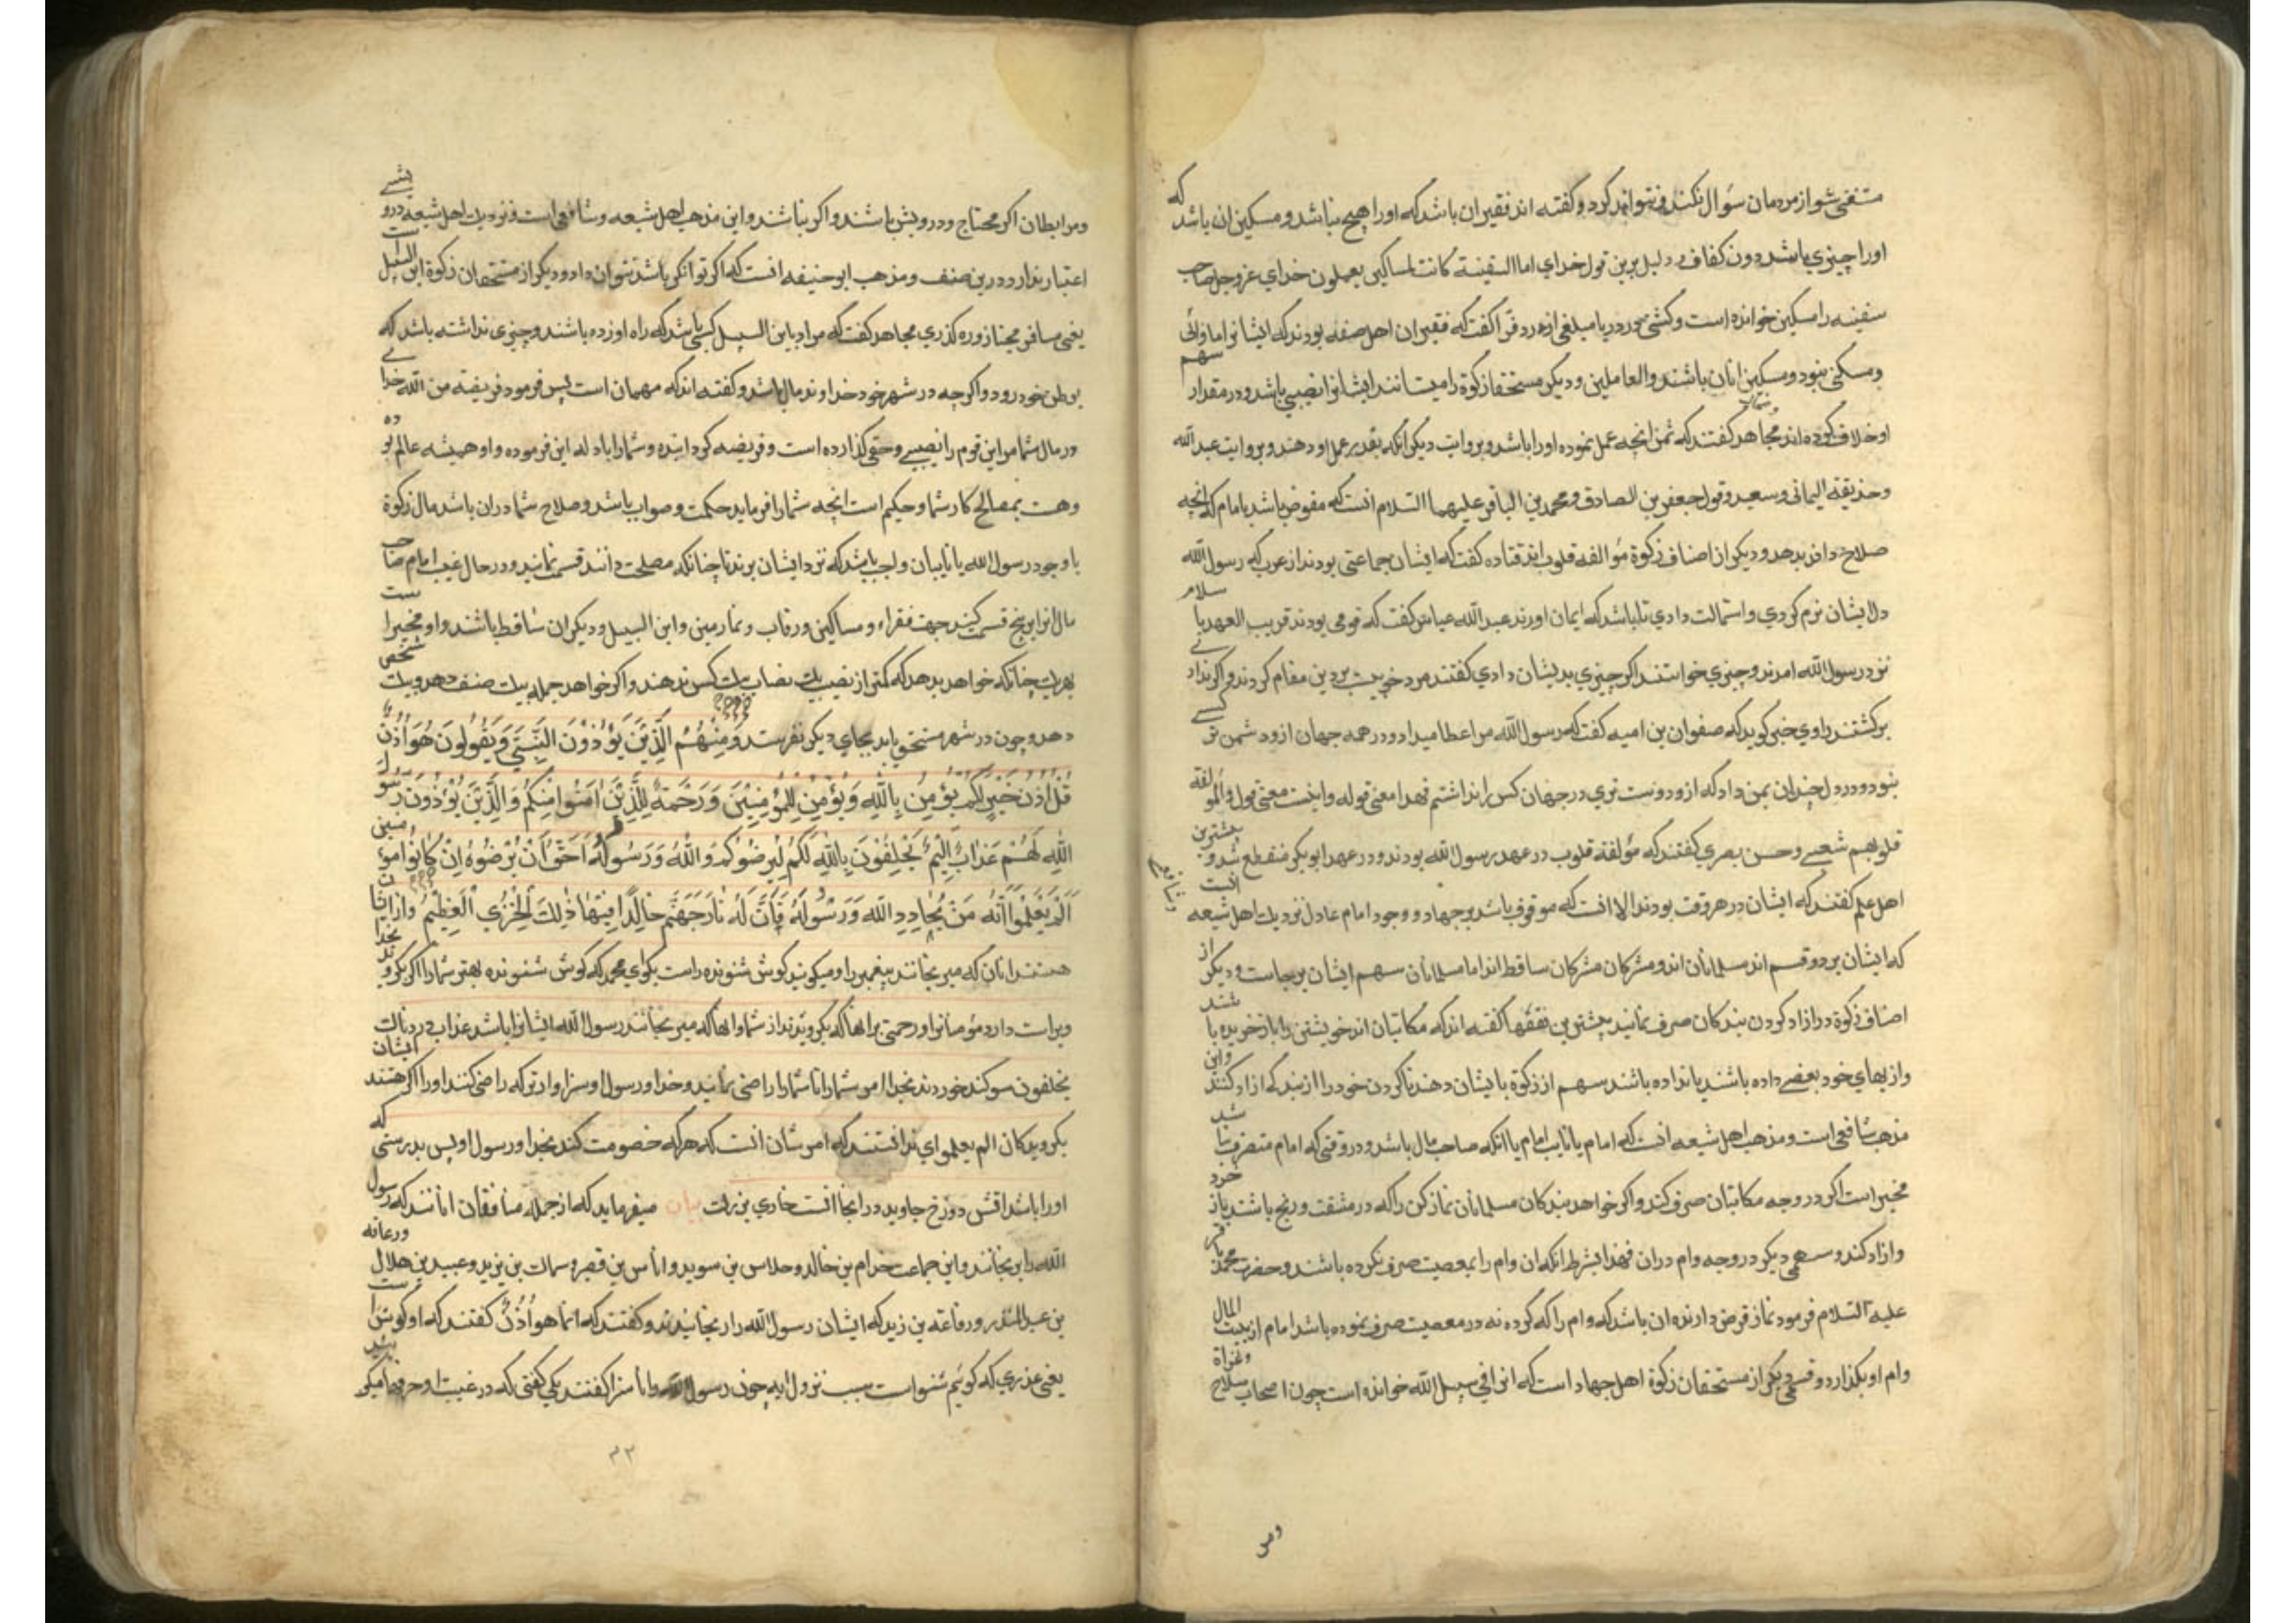 متغنی شو از مردمان سؤال نکند و نتواند کرد و گفته اند فقیر ان باشد که او را هیچ نباشد و مسکین ان باشد که
او را چیزی باشد دون کفاف و دلیل برین قول خدای اما السفینة کانت لمساکین یعملون خدای عز و جل صاحب
سفینه را مسکین خوانده است و کشتی در دریا مبلغی ارزد فرا گفت که فقیران اهل صفه بودند که ایشانرا ماوائی
و مسکنی نبود و مسکین انان باشند و العاملین و دیکر مستحقان زکوة را میستانند ایشانرا نصیبی باشد و در مقدار سهم
او خلاف کرده اند مجاهد گفتند که ثمن انچه عمل نموده او را باشد و بروایت دیکر انکه بقدر عمل او دهند و بروایت عبد الله
و حذیفه الیمانی و سعید و قول جعفر بن الصادق و محمد بن الباقر علیهما السلام انست که مفوض باشد بامام که انچه
صلاح داند بدهد و دیکر از اصناف زکوة مؤالفه قلوب اند قتاده گفت که ایشان جماعتی بودند از عرب که رسول الله
دل ایشان نرم کردی و استمالت دادی تا باشد که ایمان اورند عبد الله عباس گفت که قومی بودند قریب العهد باسلام
نزد رسول الله امدند و چیزی خواستند اکر چیزی بدیشان دادی گفتند مرد خوبیست بر دین مقام کردند و اکر ندادنی
برکشتند راوی خبر کوید که صفوان بن امیه گفت که رسول الله مرا عطا میداد و در همه جهان ازو دشمن تر کسی
نبود و در دل چندان بمن داد که ازو دوست تری در جهان کس را نداشتم فهذا معنی قوله و اینست معنی قول و المؤلفة
قلوبهم شعبی و حسن بصری گفتند که مؤلفة قلوب در عهد رسول الله بودند و در عهد ابو بکر منقطع شد و بیشترین
اهل علم گفتند که ایشان در هر وقت بودند الا انست که موقوف باشد بر جهاد و وجود امام عادل نزدیك اهل شیعه انست
که ایشان بر دو قسم اند مسلمانان اند و مشرکان مشرکان ساقط اند اما مسلمانان سهم ایشان برجاست و دیکر از
اصناف زکوة در ازاد کردن بندکان صرف نمانید بیشترین فقها گفته اند که مکاتبان اند خویشتن را باز خریده باشند
و از بهای خود بعضی داده باشند یا نداده باشند سهم از زکوة بایشان دهند تا کردن خود را از بندکی ازاد کنند و این
مذهب شافعی است و مذهب اهل شیعه انست که امام یا نایب امام یا انکه صاحب مال باشد و در وقتی که امام متصرف نباشد
مخیر است اکر در وجه مکاتبان صرف کند و اکر خواهد بندکان مسلمانان نماز کن را که در مشقت و رنج باشند باز خرد
و ازاد کند و سهمی دیکر در وجه وام دران فهذا بشرط انکه ان وام را بمعصیت صرف نکرده باشند و حضرت محمد باقر
علیه السلام فرمود نماز قرض دارنده ان باشد که وام را که کرده نه در معصیت صرف نموده باشد امام از بیت المال
وام او بکذارد و قسمی دیکر از مستحقان زکوة اهل جهاد است که انرا فی سبیل الله خوانده است چون اصحاب سلاح و غزاة
و مر
و مرابطان اکر محتاج و درویش باشند و اکر نباشند و این مذهب اهل شیعه و شافعی است و نزدیك اهل شیعه درویشی
اعتبار ندارد درین صنف و مذهب ابو حنیفه انست که اکر توانکر باشد نتوان داد و دیکر از مستحقان زکوة ابن السبیل است
یعنی مسافر مجتاز و ره کذری مجاهد گفت که مراد باین السبیل کسی باشد که راه او زده باشند و چیزی نداشته باشد که
بوطن خود رود و اکر چه در شهر خود خداوند مال باشد و گفته اند که مهمان است پس فرمود فریضة من الله خدا
در مال شما مر این قوم را نصیبی و حقی کذارده است و فریضه کردانیده و شمارا بادله این فرموده و او همیشه عالم بوده
و هست بمصالح کار شما و حکیم است انچه شمارا فرماید حکمت و صواب باشد و صلاح شما دران باشد مال زکوة
با وجود رسول الله یا نایبان واجب باشد که نزد ایشان برند تا چنانکه مصلحت دانند قسمت نمانید و در حال غیب امام صاحب
مال انرا بر پنج قسمت کنند جهت فقراء و مساکین و رقاب و غارمین و ابن السبیل و دیکران ساقط باشند و او مخیر است
بهر یك چنانکه خواهد بدهد که کمتر از نصیب یك نصاب بیك کس ندهند و اکر خواهد جمله بیك صنف دهد و بیك شخص
دهد و چون در شهر مستحق یابد بجای دیکر نفرستد وَمِنْهُمُ الَّذِينَ يُؤْذُونَ النَّبِيَّ وَيَقُولُونَ هُوَ أُذُنٌ
قُلْ أُذُنُ خَيْرٍ لَكُمْ يُؤْمِنُ بِاللَّهِ وَيُؤْمِنُ لِلْمُؤْمِنِينَ وَرَحْمَةٌ لِلَّذِينَ آمَنُوا مِنْكُمْ وَالَّذِينَ يُؤْذُونَ رَسُولَ
اللَّهِ لَهُمْ عَذَابٌ أَلِيمٌ يَحْلِفُونَ بِاللَّهِ لَكُمْ لِيُرْضُوكُمْ وَاللَّهُ وَرَسُولُهُ أَحَقُّ أَنْ يُرْضُوهُ إِنْ كَانُوا مُؤْمِنِينَ
أَلَمْ يَعْلَمُوا أَنَّهُ مَنْ يُحَادِدِ اللَّهَ وَرَسُولَهُ فَأَنَّ لَهُ نَارَ جَهَنَّمَ خَالِدًا فِيهَا ذَلِكَ الْخِزْيُ الْعَظِيمُ و از ایشان
هستند انان که میرنجانند پیغمبر را و میکویند کوش شنونده راست بکو ای محمد که کوش شنونده بهتر شمارا اکر بکروید بخدا
و براست دارد مؤمنانرا و رحمتی برانها که بکرویدند از شما و انها که میرنجانند رسول الله ایشانرا باشد عذاب دردناك
یحلفون سوکند خوردند بخدا مر شمارا تا شمارا راضی نمانید و خدا و رسول او سزاوارتر که راضی کنند او را اکر هستند ایشان
بکرویدکان الم یعلموا ای ندانستند که امر شان انست که هرکه خصومت کند بخدا و رسول او پس بدرستی که
او را باشد اتش دوزخ جاوید در انجا انست خاری بزرك بیان میفرماید که از جمله منافقان انانند که رسول
الله را برنجانند و این جماعت خرام بن خالد و جلاس بن سوید و اناس بن قیس و سماك بن یزید و عبید بن هلال
بن عبد المنذر و رفاعه بن زید که ایشان رسول الله را رنجانیدند و گفتند که انما هو اُذُنٌ گفتند که او کوش است
یعنی عذری که کوئیم شنواست سبب نزول ایه چون رسول الله را ناسزا گفتند یکی گفتی که در غیبت او حرفها میکویند